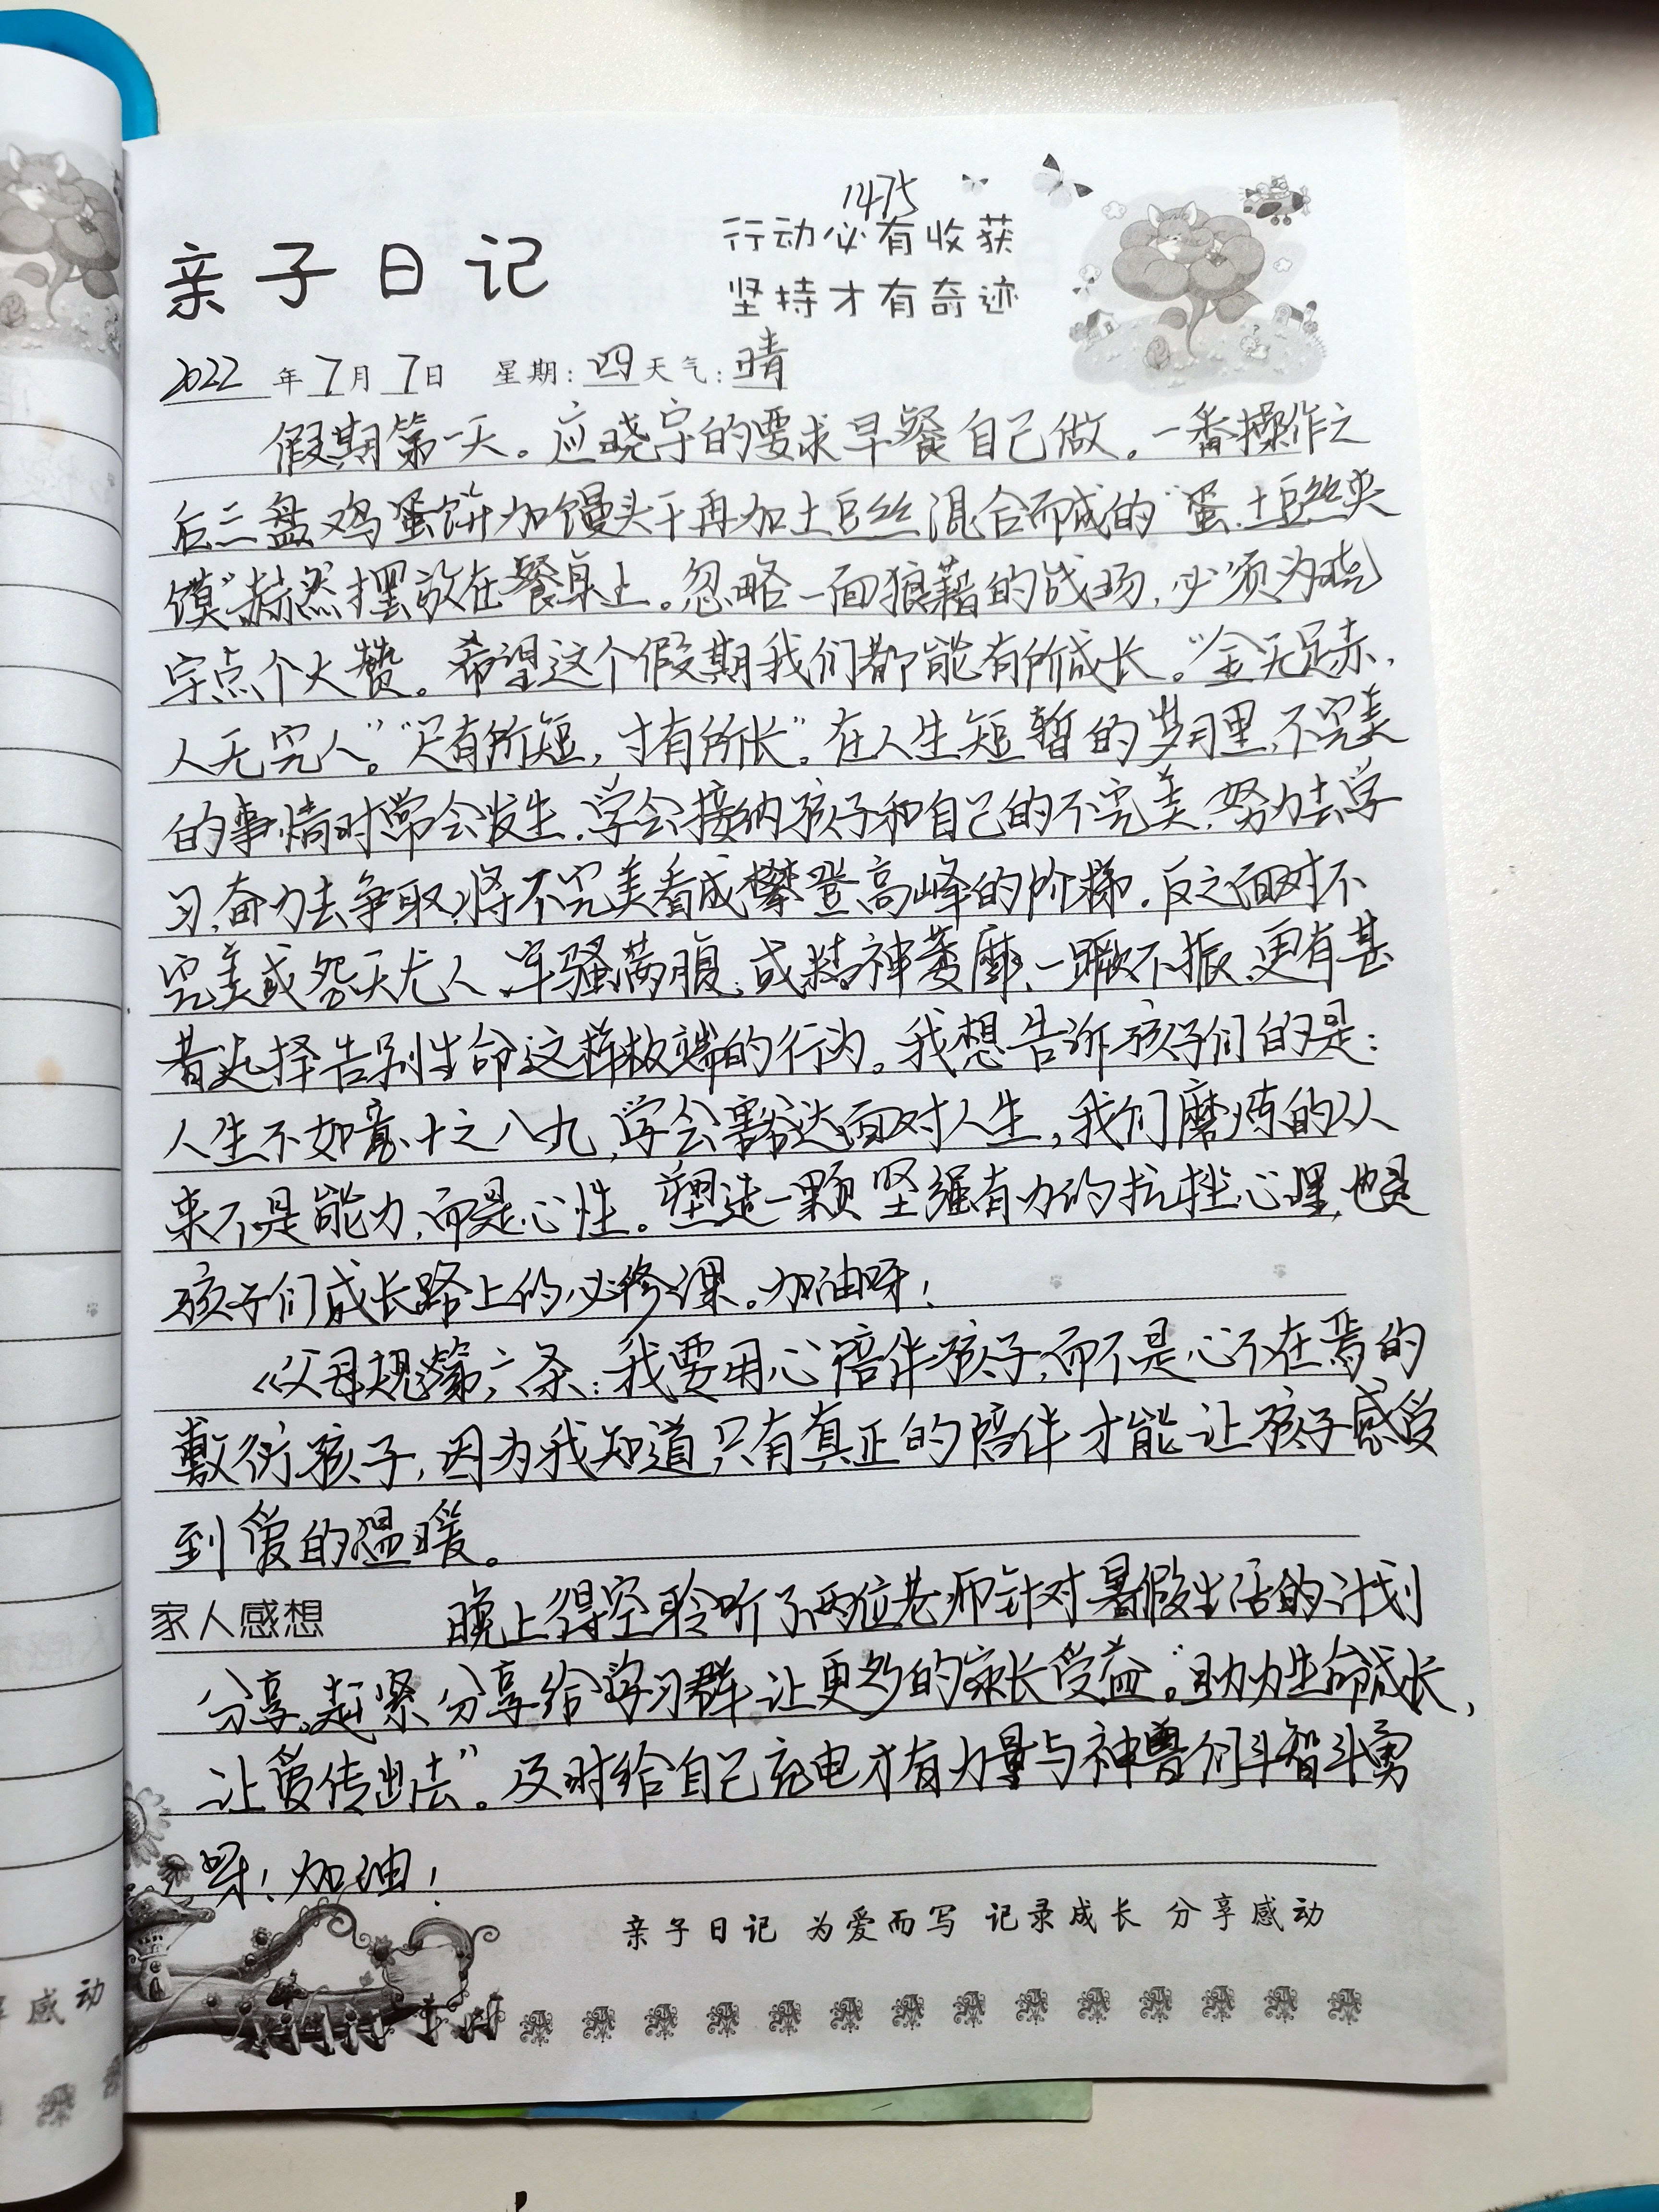 1475
行动必有收获
坚持才有奇迹
亲子日记
2022年7月7日 星期:四 天气:晴
假期第一天。应晓宇的要求早餐自己做。一番操作之
后三盘鸡蛋饼加馒头干再加土豆丝混合而成的“蛋.土豆丝夹
馍”赫然摆放在餐桌上。忽略一面狼藉的战场,必须为晓
宇点个大赞。希望这个假期我们都能有所成长。“金无足赤,
人无完人。”“尺有所短,寸有所长”。在人生短暂的岁月里,不完美
的事情时常会发生,学会接纳孩子和自己的不完美,努力去学
习,奋力去争取,将不完美看成攀登高峰的阶梯。反之面对不
完美或怨天尤人、牢骚满腹,或精神萎靡、一蹶不振,更有甚
者选择告别生命这样极端的行为。我想告诉孩子们的是:
人生不如意十之八九,学会豁达面对人生,我们磨炼的从
来不是能力,而是心性。塑造一颗坚强有力的抗挫心理,也是
孩子们成长路上的必修课。加油呀!
《父母规》第六条:我要用心陪伴孩子,而不是心不在焉的
敷衍孩子,因为我知道,只有真正的陪伴才能让孩子感受
到爱的温暖。
家人感想 晚上得空聆听了两位老师针对暑假生活的计划
分享,赶紧分享给学习群让更多的家长受益。“助力生命成长,
让爱传出去”。及时给自己充电才有力量与神兽们斗智斗勇
呀!加油!
亲子日记 为爱而写 记录成长 分享感动
享感动